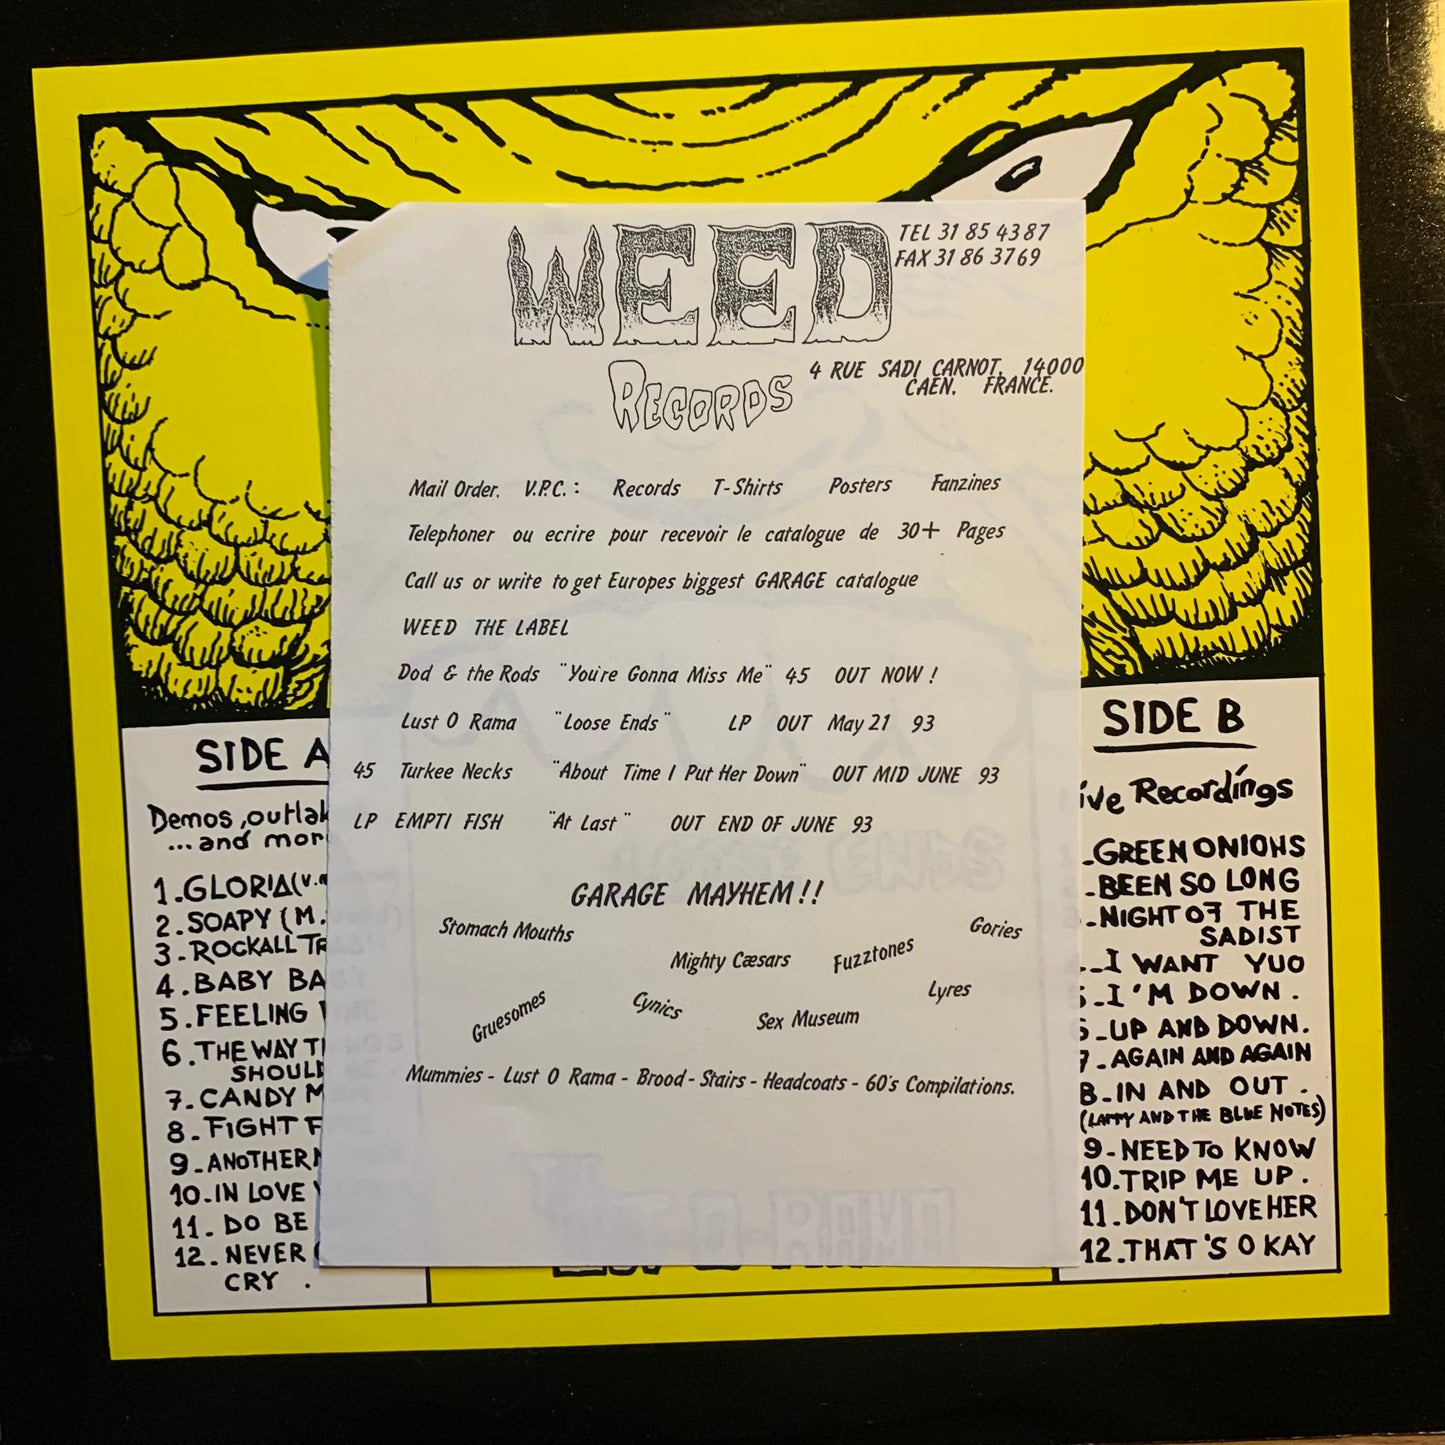 WEED
RECORDS
TEL 31 85 4387
FAX 31 86 3769
4 RUE SADI CARNOT, 14000
CAEN. FRANCE.
Mail Order. V.P.C.: Records T-Shirts Posters Fanzines
Telephoner ou ecrire pour recevoir le catalogue de 30+ Pages
Call us or write to get Europes biggest GARAGE catalogue
WEED THE LABEL
Dod & the Rods "You're Gonna Miss Me" 45 OUT NOW !
Lust O Rama "Loose Ends" LP OUT May 21 93
45 Turkee Necks "About Time I Put Her Down" OUT MID JUNE 93
LP EMPTI FISH "At Last" OUT END OF JUNE 93
GARAGE MAYHEM!!
Stomach Mouths
Mighty Cæsars
Fuzztones
Gories
Gruesomes
Cynics
Sex Museum
Lyres
Mummies - Lust O Rama - Brood - Stairs - Headcoats - 60's Compilations.
SIDE A
Demos,
...and
1.GLORIA
2.SOAPY (M.
3.ROCKALL
4.BABY
5.FEELING
6.THE WAY
SHOULD
7.CANDY
8.FIGHT
9-ANOTHER
10.IN LOVE
11. DO BE
12.NEVER
CRY .
SIDE B
Recordings
-GREEN ONIONS
-BEEN SO LONG
-NIGHT OF THE
SADIST
-I WANT YUO
-I'M DOWN.
-UP AND DOWN.
7-AGAIN AND AGAIN
8-IN AND OUT.
AND THE BLUE NOTES)
9-NEED TO KNOW
10.TRIP ME UP.
11.DON'T LOVE HER
12.THAT'S OKAY